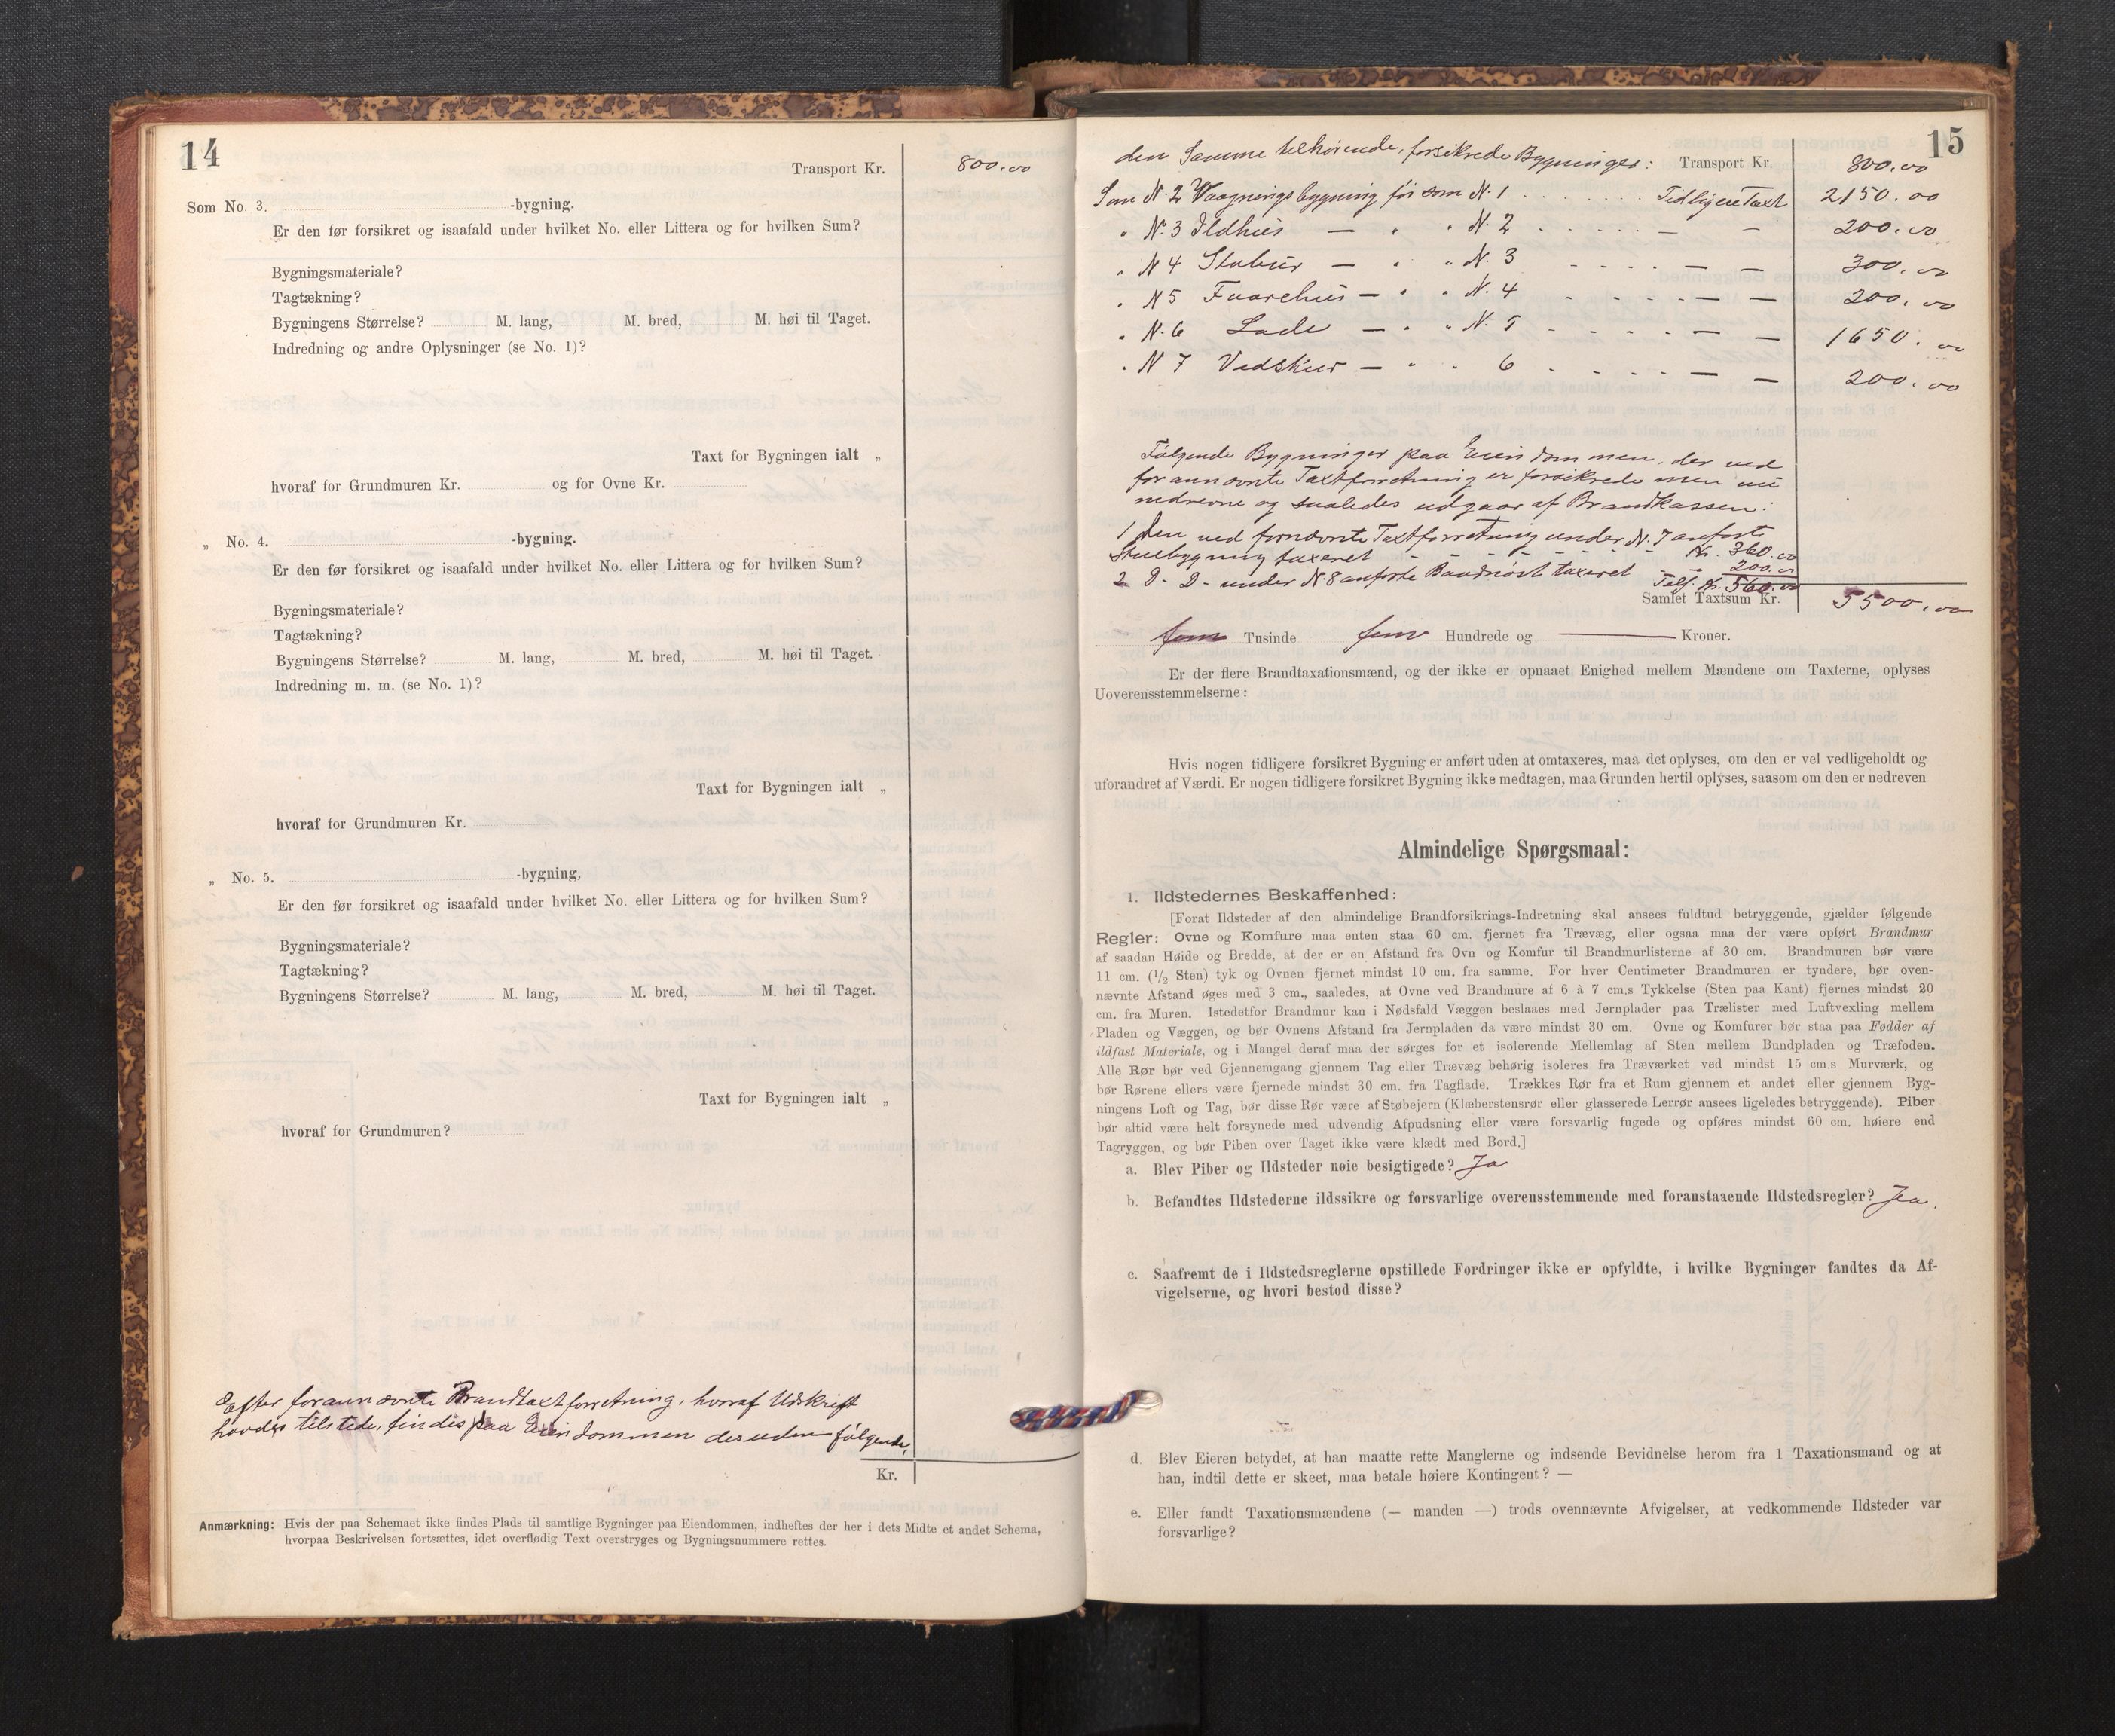 14
Transport Kr. 800.00
Som No. 3. -bygning.
Er den før forsikret og isaafald under hvilket No. eller Littera og for hvilken Sum?
Bygningsmateriale?
Tagtækning?
Bygningens Størrelse? M. lang, M. bred, M. høi til Taget.
Indredning og andre Oplysninger (se No. 1)?
Taxt for Bygningen ialt „
hvoraf for Grundmuren Kr. og for Ovne Kr.
„ No. 4. -bygning.
Er den før forsikret og isaafald under hvilket No. eller Littera og for hvilken Sum?
Bygningsmateriale?
Tagtækning?
Bygningens Størrelse? M. lang, M. bred, M. høi til Taget.
Indredning m. m. (se No. 1)?
Taxt for Bygningen ialt „
hvoraf for Grundmuren Kr.
„ No. 5. -bygning.
Er den før forsikret og isaafald under hvilket No. eller Littera og for hvilken Sum?
Bygningsmateriale?
Tagtækning?
Bygningens Størrelse? M. lang, M. bred, M. høi til Taget.
Taxt for Bygningen ialt „
hvoraf for Grundmuren?
Efter forannævnte Brandtaxtforretning, hvoraf Udskrift
havdes tilstede, findes paa Eiendommen desuden følgende,
Kr.
Anmærkning: Hvis der paa Schemaet ikke findes Plads til samtlige Bygninger paa Eiendommen, indheftes der her i dets Midte et andet Schema,
hvorpaa Beskrivelsen fortsættes, idet overflødig Text overstryges og Bygningsnummere rettes.
15
den Samme tilhørende, forsikrede Bygninger: Transport Kr. 800.00
Som N. 2 Vaaningsbygning før som N. 1 . . . . . . . Tidligere Taxt 2150.00
" N. 3 Ildhus — " " N. 2 - - - - - — — 200.00
" N 4 Stabur — " " N. 3 - - - - — — 300.00
" N 5 Faarehus — " " N. 4 - - - - - — — 200.00
" N. 6 Lade — " " N. 5 - - - - - — — 1650.00
" N 7 Vedskur — " " 6 - - - - - — — 200.00
Følgende Bygninger paa Eiendommen, der ved
forannævnte Taxtforretning er forsikrede men nu
nedrevne og saaledes udgaar af Brandkassen:
1 Den ved fornævnte Taxtforretning under N. 7 anførte
Stuebygning taxeret - - - - - - - Kr. 360.00
2 D - D - under N. 8 anførte Baadnøst taxeret - - 200.00
Tils. Kr. 560.00
Samlet Taxtsum Kr. 5500.00
fem Tusinde fem Hundrede og ——— Kroner.
Er der flere Brandtaxationsmænd, og der ikke er opnaaet Enighed mellem Mændene om Taxterne, oplyses
Uoverensstemmelserne:
Hvis nogen tidligere forsikret Bygning er anført uden at omtaxeres, maa det oplyses, om den er vel vedligeholdt og
uforandret af Værdi. Er nogen tidligere forsikret Bygning ikke medtagen, maa Grunden hertil oplyses, saasom om den er nedreven
Almindelige Spørgsmaal:
1. Ildstedernes Beskaffenhed:
[Forat Ildsteder af den almindelige Brandforsikrings-Indretning skal ansees fuldtud betryggende, gjælder følgende
Regler: Ovne og Komfure maa enten staa 60 cm. fjernet fra Trævæg, eller ogsaa maa der være opført Brandmur
af saadan Høide og Bredde, at der er en Afstand fra Ovn og Komfur til Brandmurlisterne af 30 cm. Brandmuren bør være
11 cm. (1/2 Sten) tyk og Ovnen fjernet mindst 10 cm. fra samme. For hver Centimeter Brandmuren er tyndere, bør oven-
nævnte Afstand øges med 3 cm., saaledes, at Ovne ved Brandmure af 6 à 7 cm.s Tykkelse (Sten paa Kant) fjernes mindst 20
cm. fra Muren. Istedetfor Brandmur kan i Nødsfald Væggen beslaaes med Jernplader paa Trælister med Luftvexling mellem
Pladen og Væggen, og bør Ovnens Afstand fra Jernpladen da være mindst 30 cm. Ovne og Komfurer bør staa paa Fødder af
ildfast Materiale, og i Mangel deraf maa der sørges for et isolerende Mellemlag af Sten mellem Bundpladen og Træfoden.
Alle Rør bør ved Gjennemgang gjennem Tag eller Trævæg behørig isoleres fra Træværket ved mindst 15 cm.s Murværk, og
bør Rørene ellers være fjernede mindst 30 cm. fra Tagflade. Trækkes Rør fra et Rum gjennem et andet eller gjennem Byg-
ningens Loft og Tag, bør disse Rør være af Støbejern (Klæberstensrør eller glasserede Lerrør ansees ligeledes betryggende). Piber
bør altid være helt forsynede med udvendig Afpudsning eller være forsvarlig fugede og opføres mindst 60 cm. høiere end
Tagryggen, og bør Piben over Taget ikke være klædt med Bord.]
a. Blev Piber og Ildsteder nøie besigtigede? Ja
b. Befandtes Ildstederne ildssikre og forsvarlige overensstemmende med foranstaaende Ildstedsregler? Ja.
c. Saafremt de i Ildstedsreglerne opstillede Fordringer ikke er opfyldte, i hvilke Bygninger fandtes da Af-
vigelserne, og hvori bestod disse?
d. Blev Eieren betydet, at han maatte rette Manglerne og indsende Bevidnelse herom fra 1 Taxationsmand og at
han, indtil dette er skeet, maa betale høiere Kontingent? —
e. Eller fandt Taxationsmændene (— manden —) trods ovennævnte Afvigelser, at vedkommende Ildsteder var
forsvarlige?